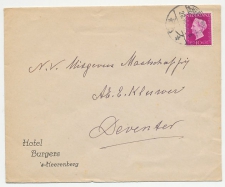 N.V. Uitgevers Maatschappij
Æ. E. Kluwer
Deventer
Hotel
Burgers
's-Heerenberg